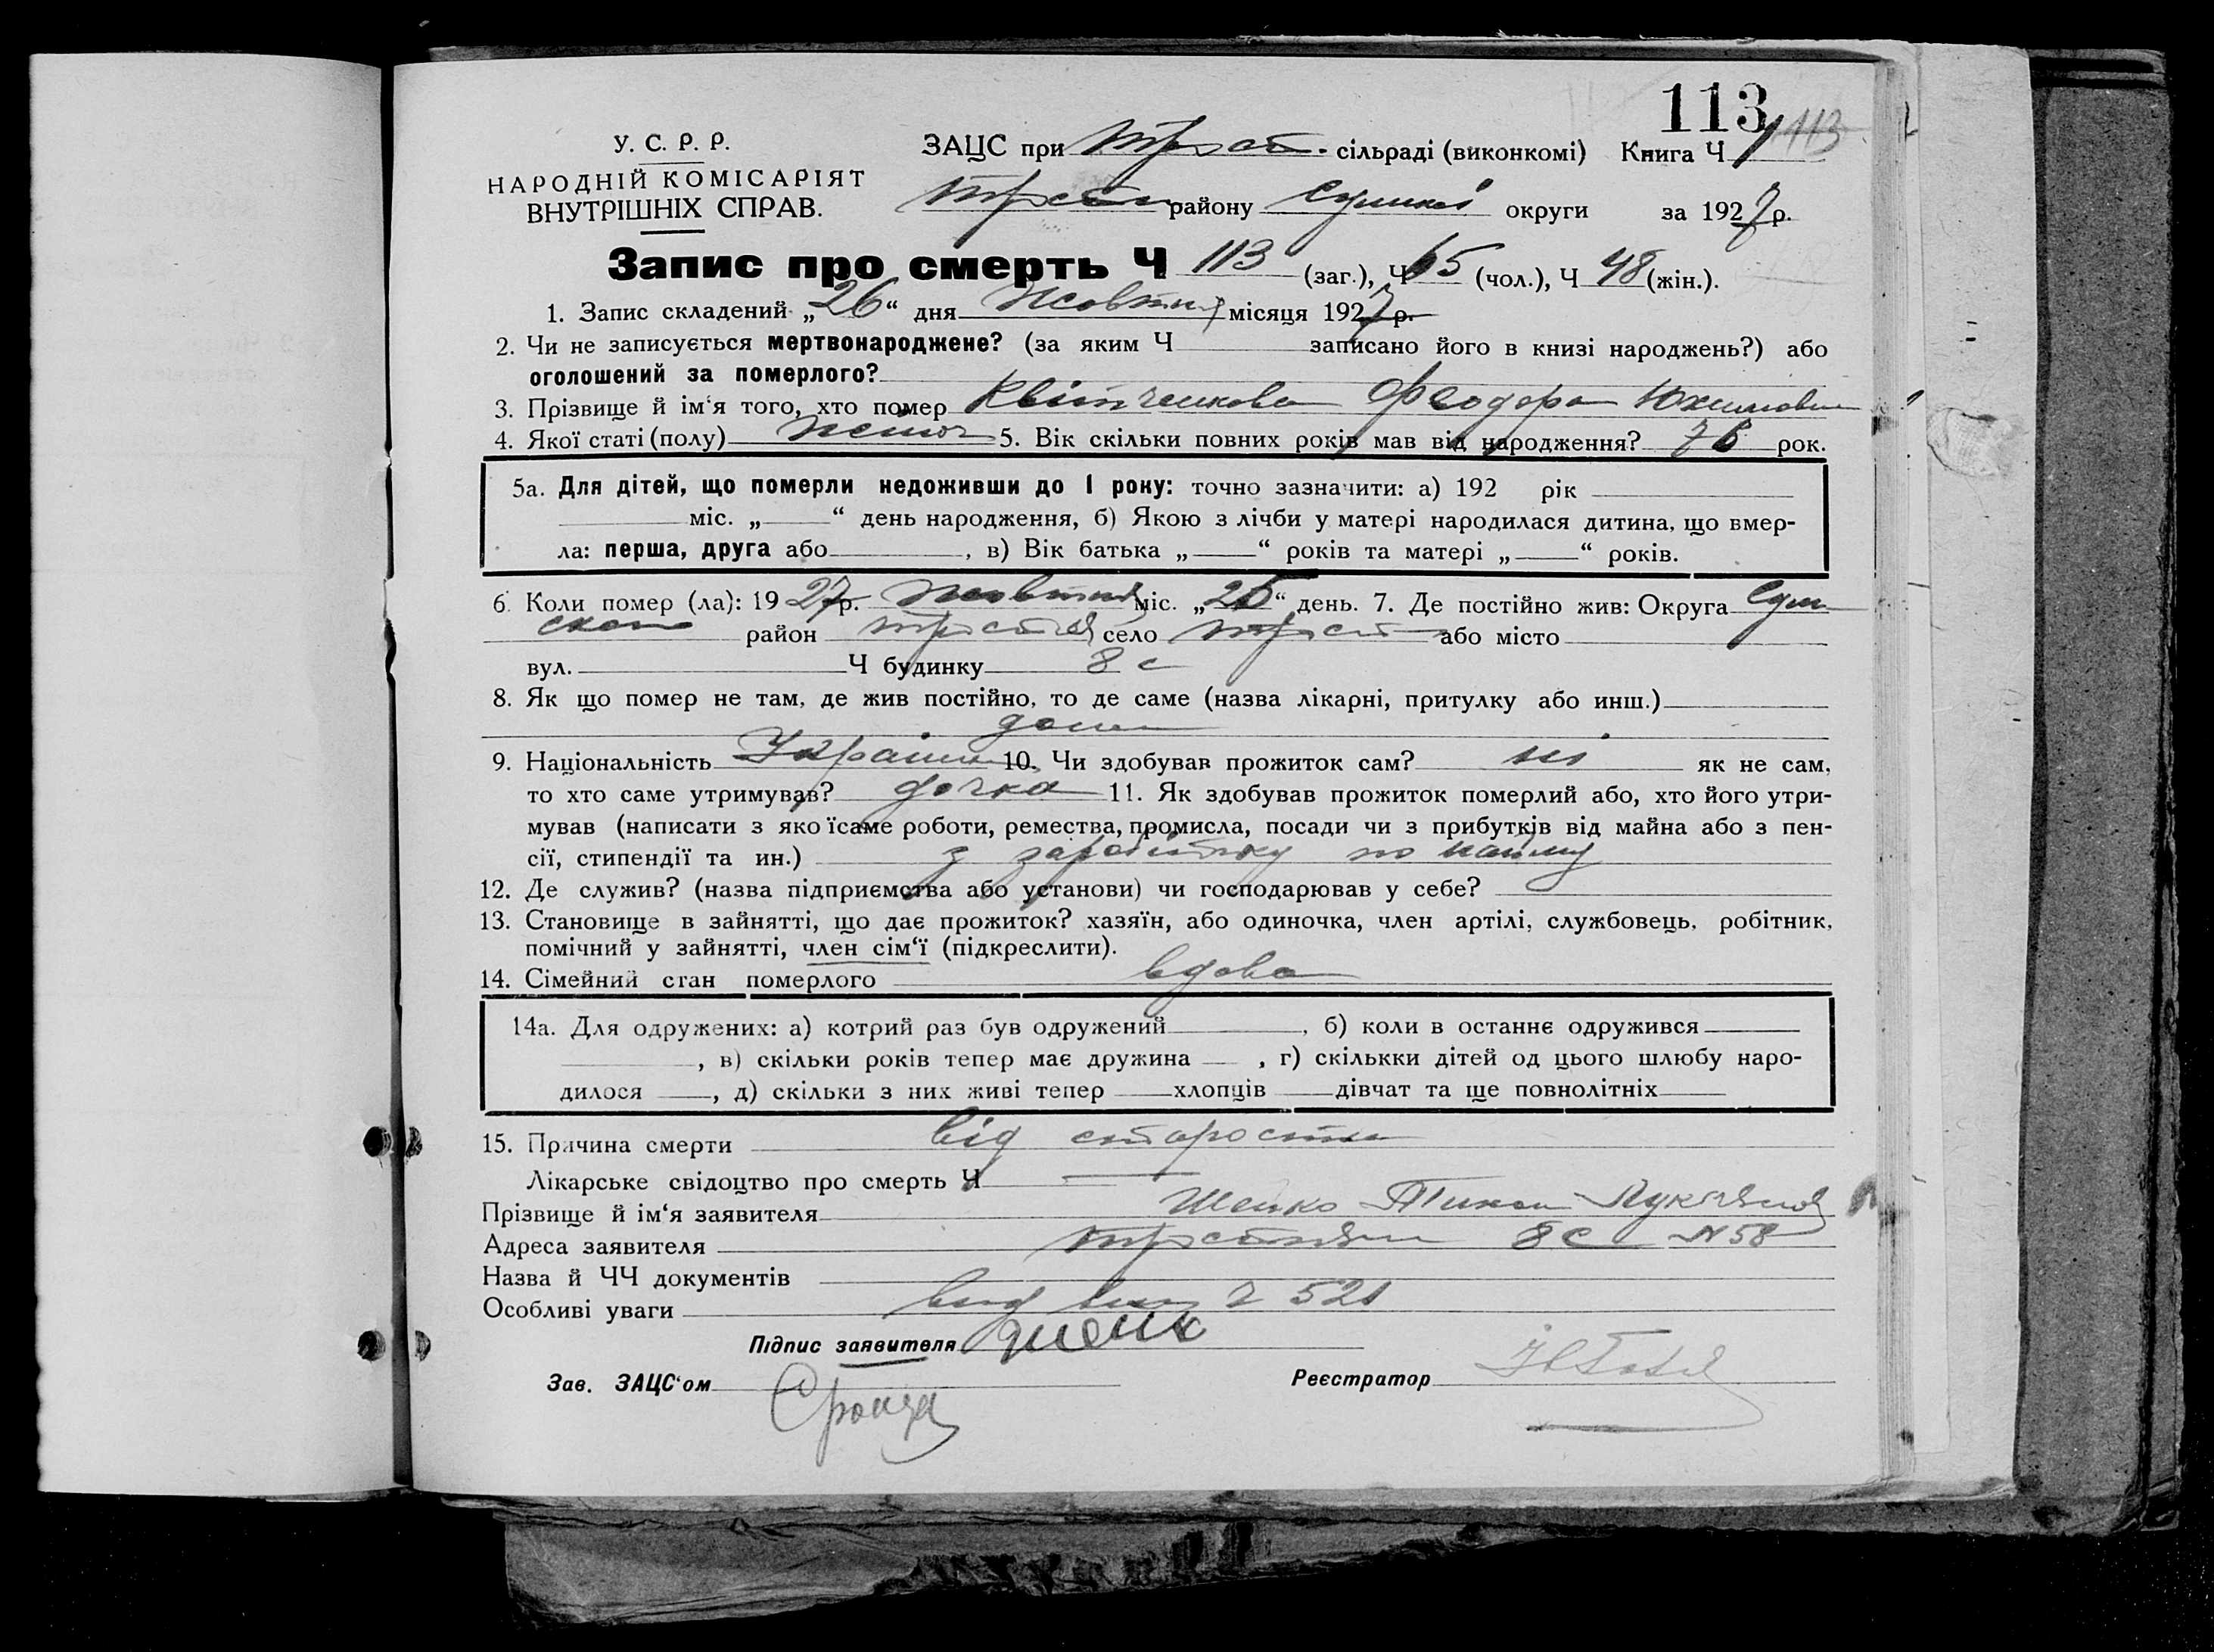 113
У. С. Р. Р.
НАРОДНІЙ КОМІСАРІЯТ
ВНУТРІШНІХ СПРАВ.
ЗАЦС при Трост. сільраді (виконкомі) Книга Ч 1 113
району Сумської округи за 1927 р.
Запис про смерть Ч 113 (заг.), Ч 65 (чол.), Ч 48 (жін.).
1. Запис складений „26“ дня Жовтня місяця 1927 р.
2. Чи не записується мертвонароджене? (за яким Ч записано його в книзі народжень?) або
оголошений за померлого?
3. Прізвище й ім‘я того, хто помер Квітченкова Феодора Юхимовна
4. Якої статі (полу) жіноч 5. Вік скільки повних років мав від народження? 76 рок.
5а. Для дітей, що померли недоживши до 1 року: точно зазначити: а) 192 рік
міс. „ “ день народження, б) Якою з лічби у матері народилася дитина, що вмер-
ла: перша, друга або , в) Вік батька „ “ років та матері „ “ років.
6. Коли помер (ла): 1927 р. Жовтня міс. „25“ день. 7. Де постійно жив: Округа Сум
ская район село або місто
вул. Ч будинку 8 с
8. Як що помер не там, де жив постійно, то де саме (назва лікарні, притулку або инш.)
дома
9. Національність Україн 10. Чи здобував прожиток сам? ні як не сам,
то хто саме утримував? дочка 11. Як здобував прожиток померлий або, хто його утри-
мував (написати з яко їсаме роботи, ремества, промисла, посади чи з прибутків від майна або з пен-
сії, стипендії та ин.) з заробітку по найму
12. Де служив? (назва підприємства або установи) чи господарював у себе?
13. Становище в зайнятті, що дає прожиток? хазяїн, або одиночка, член артілі, службовець, робітник,
помічний у зайнятті, член сім‘ї (підкреслити).
14. Сімейний стан померлого вдова
14а. Для одружених: а) котрий раз був одружений , б) коли в останнє одружився
, в) скільки років тепер має дружина , г) скількки дітей од цього шлюбу наро-
дилося , д) скільки з них живі тепер хлопців дівчат та ще повнолітніх
15. Причина смерти від старости
Лікарське свідоцтво про смерть Ч
Прізвище й ім‘я заявителя
Адреса заявителя 8 с № 58
Назва й ЧЧ документів
Особливі уваги 521
Підпис заявителя
Зав. ЗАЦС‘ом
Реєстратор